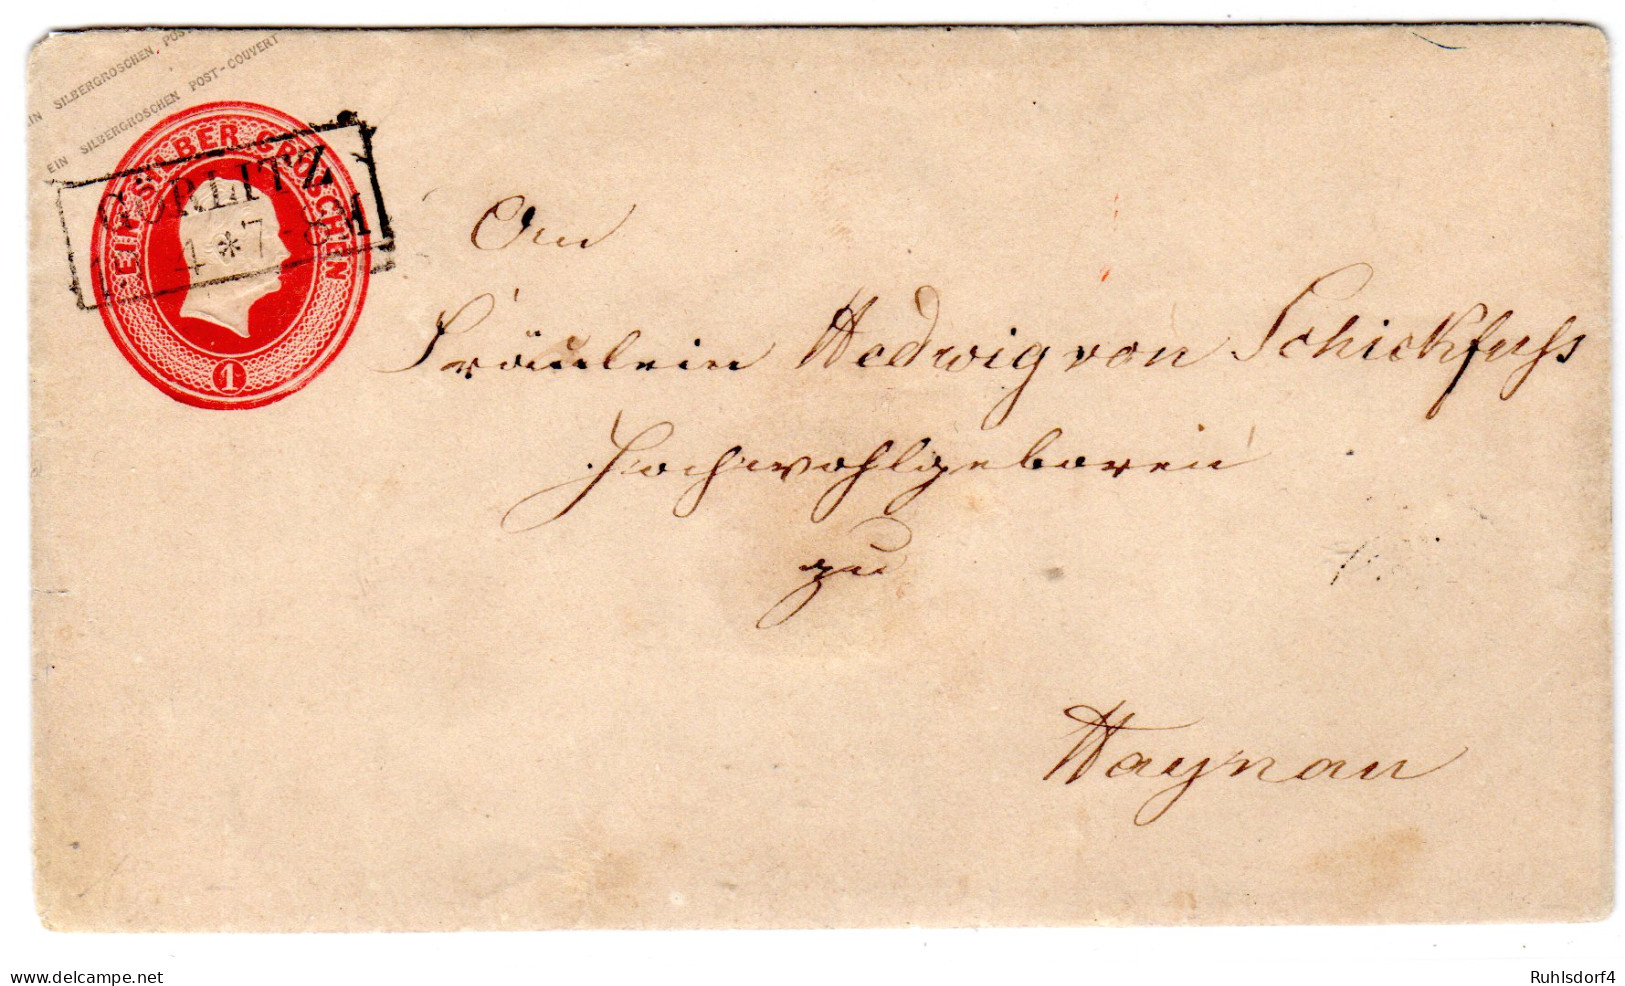 EIN SILBERGROSCHEN POST
EIN SILBERGROSCHEN POST-COUVERT
EIN SILBER GROSCHEN
1
GÖRLITZ
4 * 7-8
An
Fräulein Hedwig von Schickfuss
Hochwohlgeboren
zu
Haynau
delcampe.net
Ruhlsdorf4